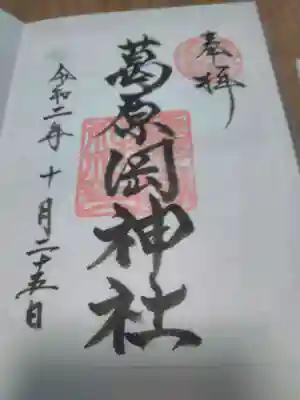 奉拝
葛原岡神社
令和二年十月二十五日